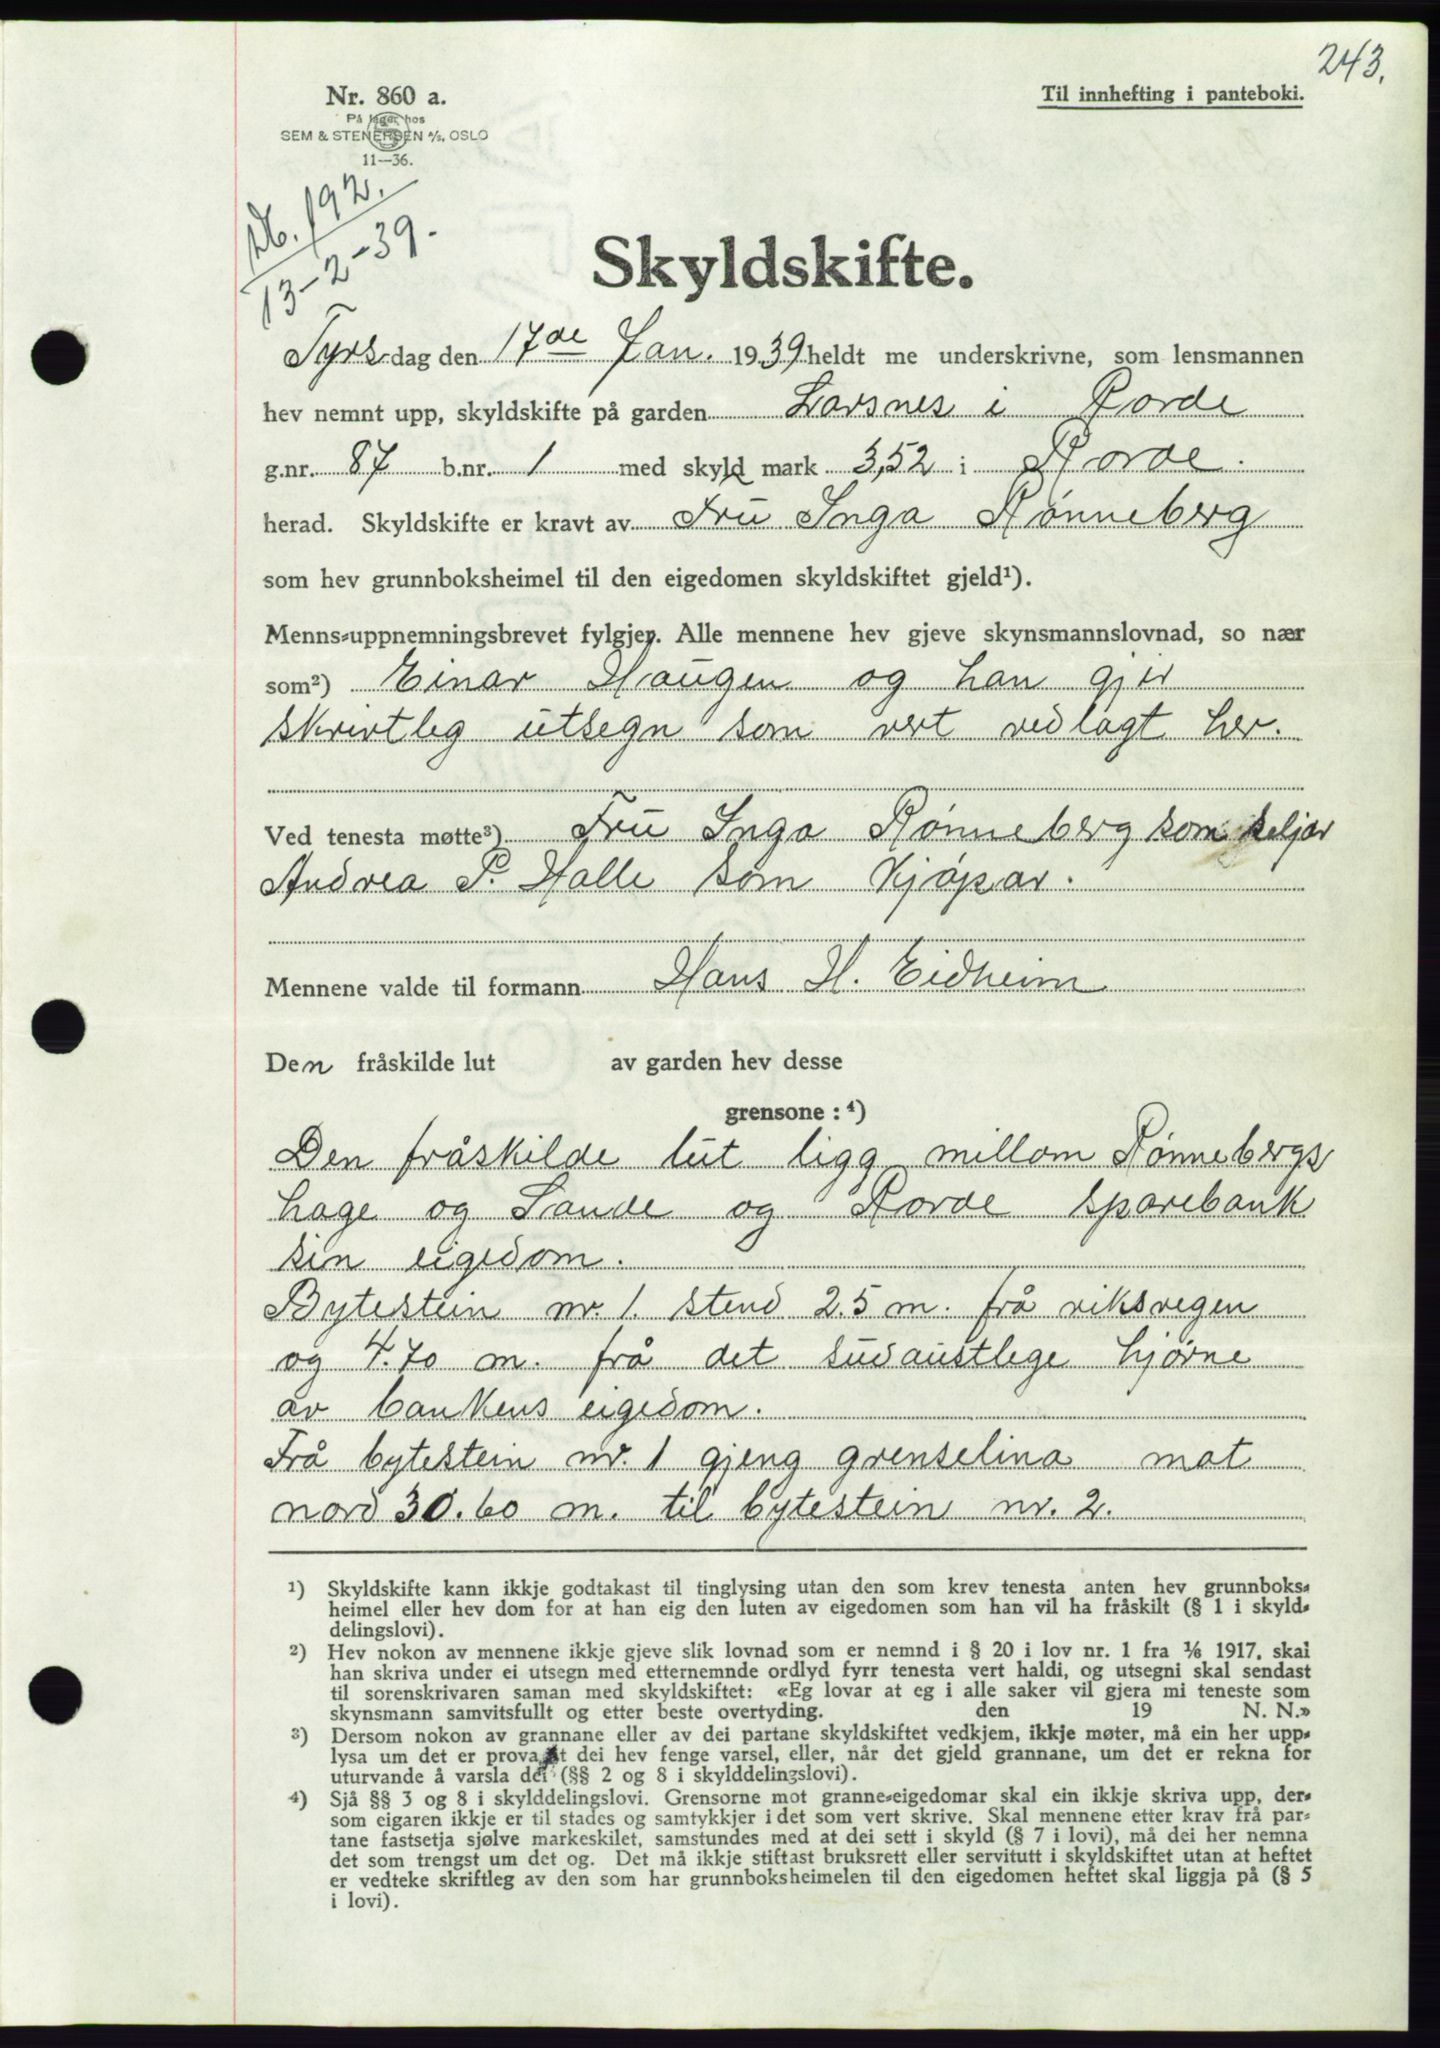 243.
Nr. 860 a.
På lager hos
SEM & STENERSEN A/S, OSLO
11—36.
Til innhefting i panteboki.
Nb. 192.
13-2-39.
Skyldskifte.
Tyrs dag den 17de Jan. 1939 heldt me underskrivne, som lensmannen
hev nemnt upp, skyldskifte på garden Larsnes i Rovde
g.nr. 87 b.nr. 1 med skyld mark 3,52 i Rovde.
herad. Skyldskifte er kravt av Fru Inga Rønneberg
som hev grunnboksheimel til den eigedomen skyldskiftet gjeld¹).
Menns-uppnemningsbrevet fylgjer. Alle mennene hev gjeve skynsmannslovnad, so nær
som²) Einar Haugen og han gjer
skrivtleg utsegn som vert vedlagt her.
Ved tenesta møtte³) Fru Inga Rønneberg som seljar
Andrea P. Halle som kjøpar.
Mennene valde til formann Hans H. Eidheim
Den fråskilde lut av garden hev desse
grensone : ⁴)
Den fråskilde lut ligg millom Rønnebergs
hage og Sande og Rovde sparebank
sin eigedom.
Bytestein nr. 1. stend 2.5 m. frå riksvegen
og 4.70 m. frå det sudaustlege hjørne
av bankens eigedom.
Frå bytestein nr. 1 gjeng grenselina mot
nord 30.60 m. til bytestein nr. 2.
¹) Skyldskifte kann ikkje godtakast til tinglysing utan den som krev tenesta anten hev grunnboks-
heimel eller hev dom for at han eig den luten av eigedomen som han vil ha fråskilt (§ 1 i skyld-
delingslovi).
²) Hev nokon av mennene ikkje gjeve slik lovnad som er nemnd i § 20 i lov nr. 1 fra 1/6 1917, skal
han skriva under ei utsegn med etternemnde ordlyd fyrr tenesta vert haldi, og utsegni skal sendast
til sorenskrivaren saman med skyldskiftet: «Eg lovar at eg i alle saker vil gjera mi teneste som
skynsmann samvitsfullt og etter beste overtyding. den 19 N. N.»
³) Dersom nokon av grannane eller av dei partane skyldskiftet vedkjem, ikkje møter, må ein her upp-
lysa um det er prova at dei hev fenge varsel, eller, når det gjeld grannane, um det er rekna for
uturvande å varsla dei (§§ 2 og 8 i skylddelingslovi).
⁴) Sjå §§ 3 og 8 i skylddelingslovi. Grensorne mot granne-eigedomar skal ein ikkje skriva upp, der-
som eigaren ikkje er til stades og samtykkjer i det som vert skrive. Skal mennene etter krav frå par-
tane fastsetja sjølve markeskilet, samstundes med at dei sett i skyld (§ 7 i lovi), må dei her nemna
det som trengst um det og. Det må ikkje stiftast bruksrett eller servitutt i skyldskiftet utan at heftet
er vedteke skriftleg av den som har grunnboksheimelen til den eigedomen heftet skal liggja på (§ 5
i lovi).